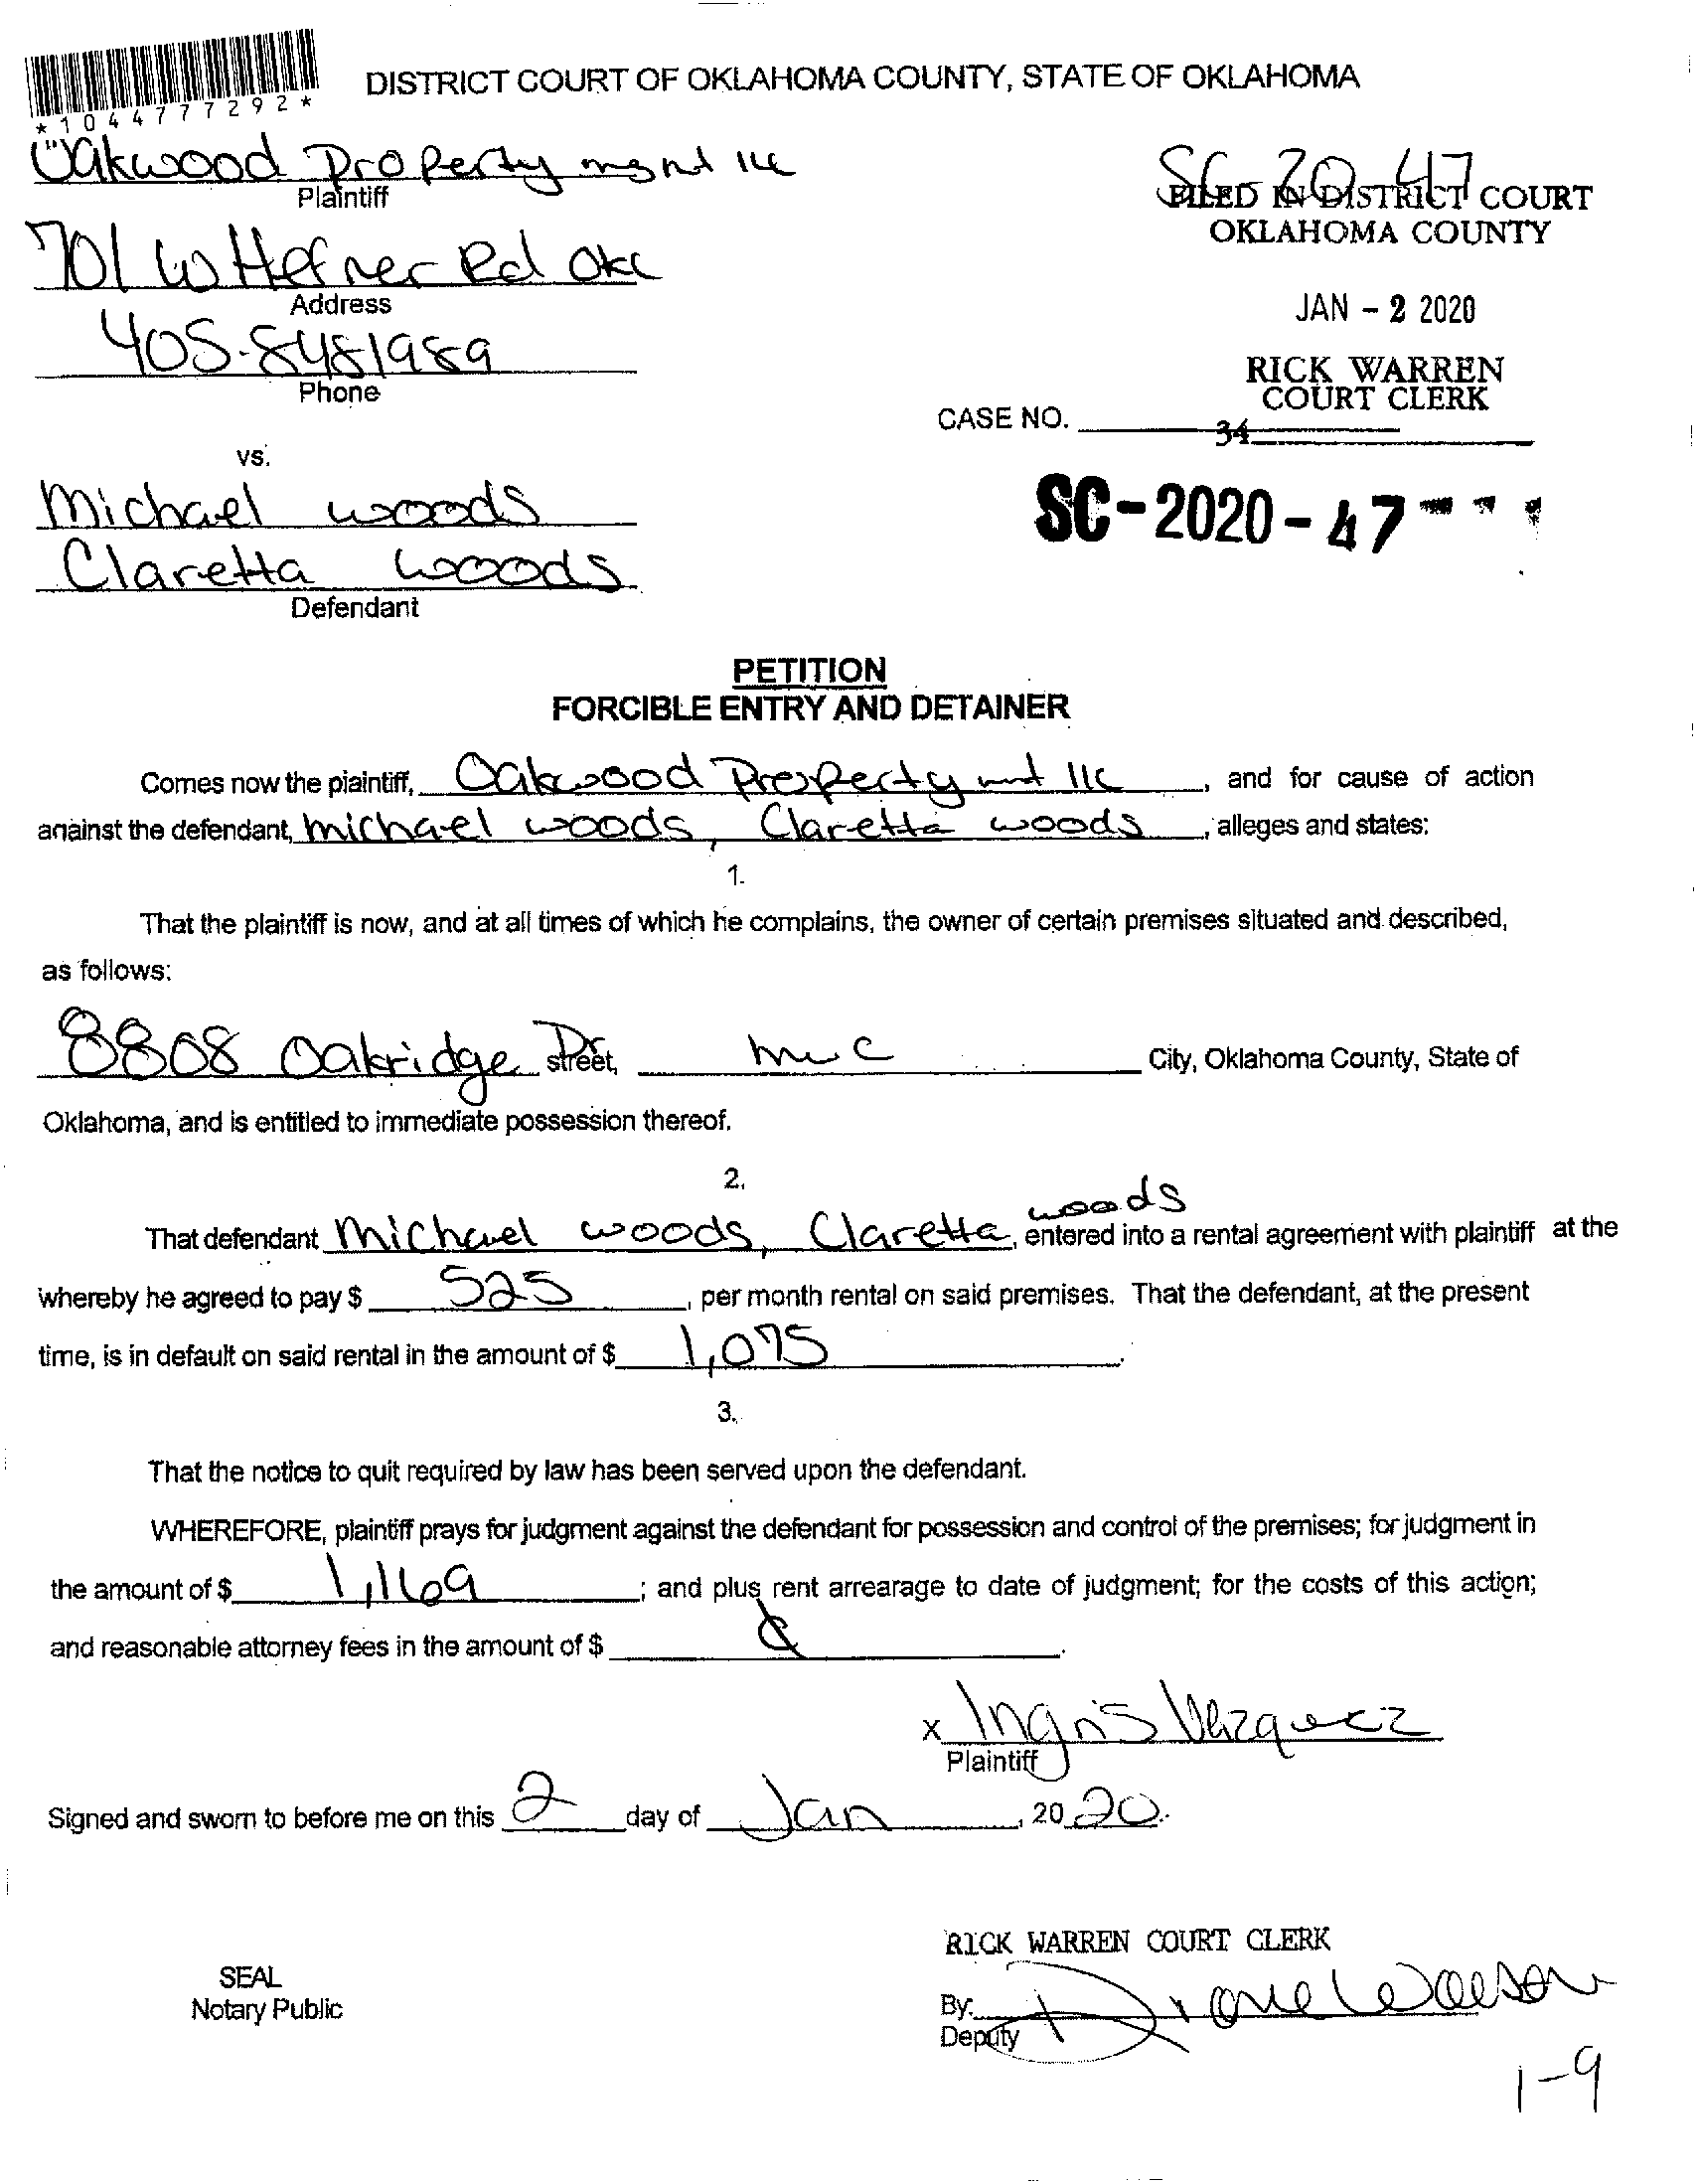 *1044777292*
DISTRICT COURT OF OKLAHOMA COUNTY, STATE OF OKLAHOMA
Oakwood Property mgnt llc
Plaintiff
SC-20-47
FILED IN DISTRICT COURT
OKLAHOMA COUNTY
701 W Hefner Rd OKC
Address
JAN - 2 2020
405-8481989
Phone
RICK WARREN
COURT CLERK
CASE NO.
34
vs.
Michael woods
SC-2020-47
Claretta woods
Defendant
PETITION
FORCIBLE ENTRY AND DETAINER
Comes now the plaintiff, Oakwood Property mt llc, and for cause of action
against the defendant, michael woods, Claretta woods, alleges and states:
1.
That the plaintiff is now, and at all times of which he complains, the owner of certain premises situated and described,
as follows:
8808 Oakridge Dr street, mwc City, Oklahoma County, State of
Oklahoma, and is entitled to immediate possession thereof.
2.
That defendant Michael woods, Claretta woods, entered into a rental agreement with plaintiff at the
whereby he agreed to pay $ 525, per month rental on said premises. That the defendant, at the present
time, is in default on said rental in the amount of $ 1,075.
3.
That the notice to quit required by law has been served upon the defendant.
WHEREFORE, plaintiff prays for judgment against the defendant for possession and control of the premises; for judgment in
the amount of $ 1,169; and plus rent arrearage to date of judgment; for the costs of this action;
and reasonable attorney fees in the amount of $
x Ingris Vazquez
Plaintiff
Signed and sworn to before me on this 2 day of Jan, 2020.
RICK WARREN COURT CLERK
SEAL
Notary Public
By:
Deputy
1-9